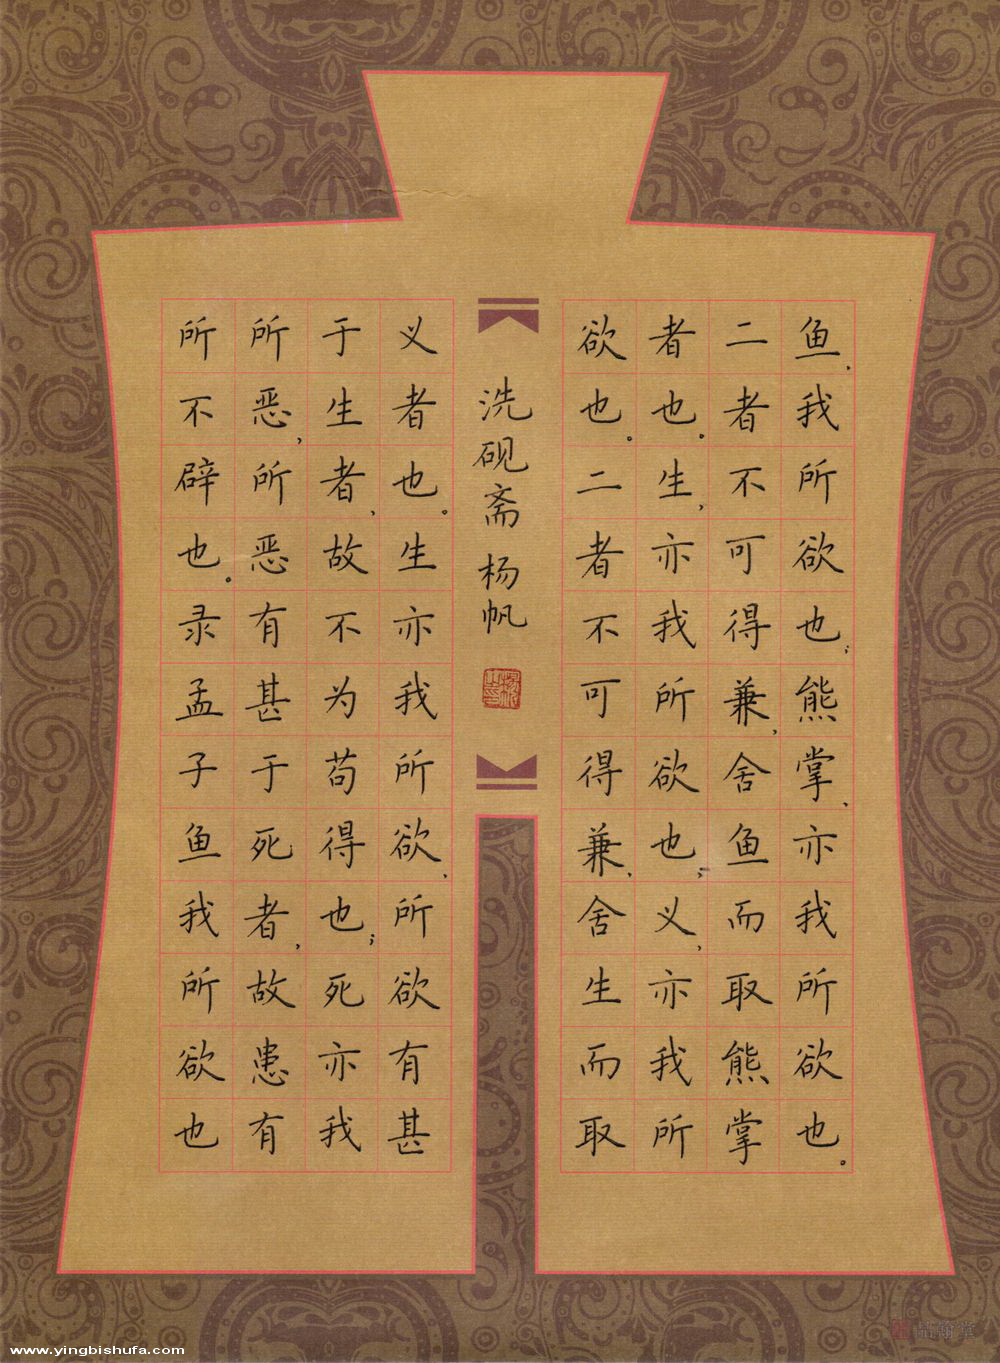 鱼，我所欲也；熊掌，亦我所欲也。
二者不可得兼，舍鱼而取熊掌
者也。生，亦我所欲也；义，亦我所
欲也。二者不可得兼，舍生而取
义者也。生亦我所欲，所欲有甚
于生者，故不为苟得也；死亦我
所恶，所恶有甚于死者，故患有
所不辟也。录孟子鱼我所欲也
洗砚斋 杨帆
www.yingbishufa.com